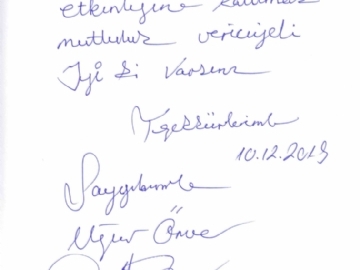 etkinliğine katılmak
mutluluk vericiydi
İyi ki Varsınız
Teşekkürlerimle
10.12.2019
Saygılarımla
Uğur